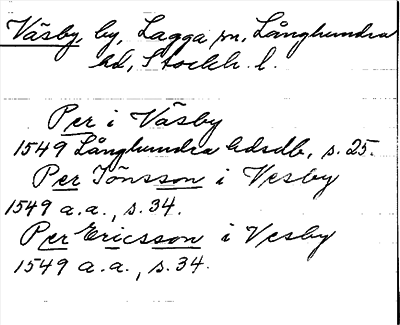 Väsby by, Lagga sn, Långhundra
hd, Stockh. l.
Per i Väsby
1549 Långhundra hdsdb, s. 25.
Per Jönsson i Vesby
1549 a.a., s. 34.
Per Ericsson i Vesby
1549 a.a., s. 34.